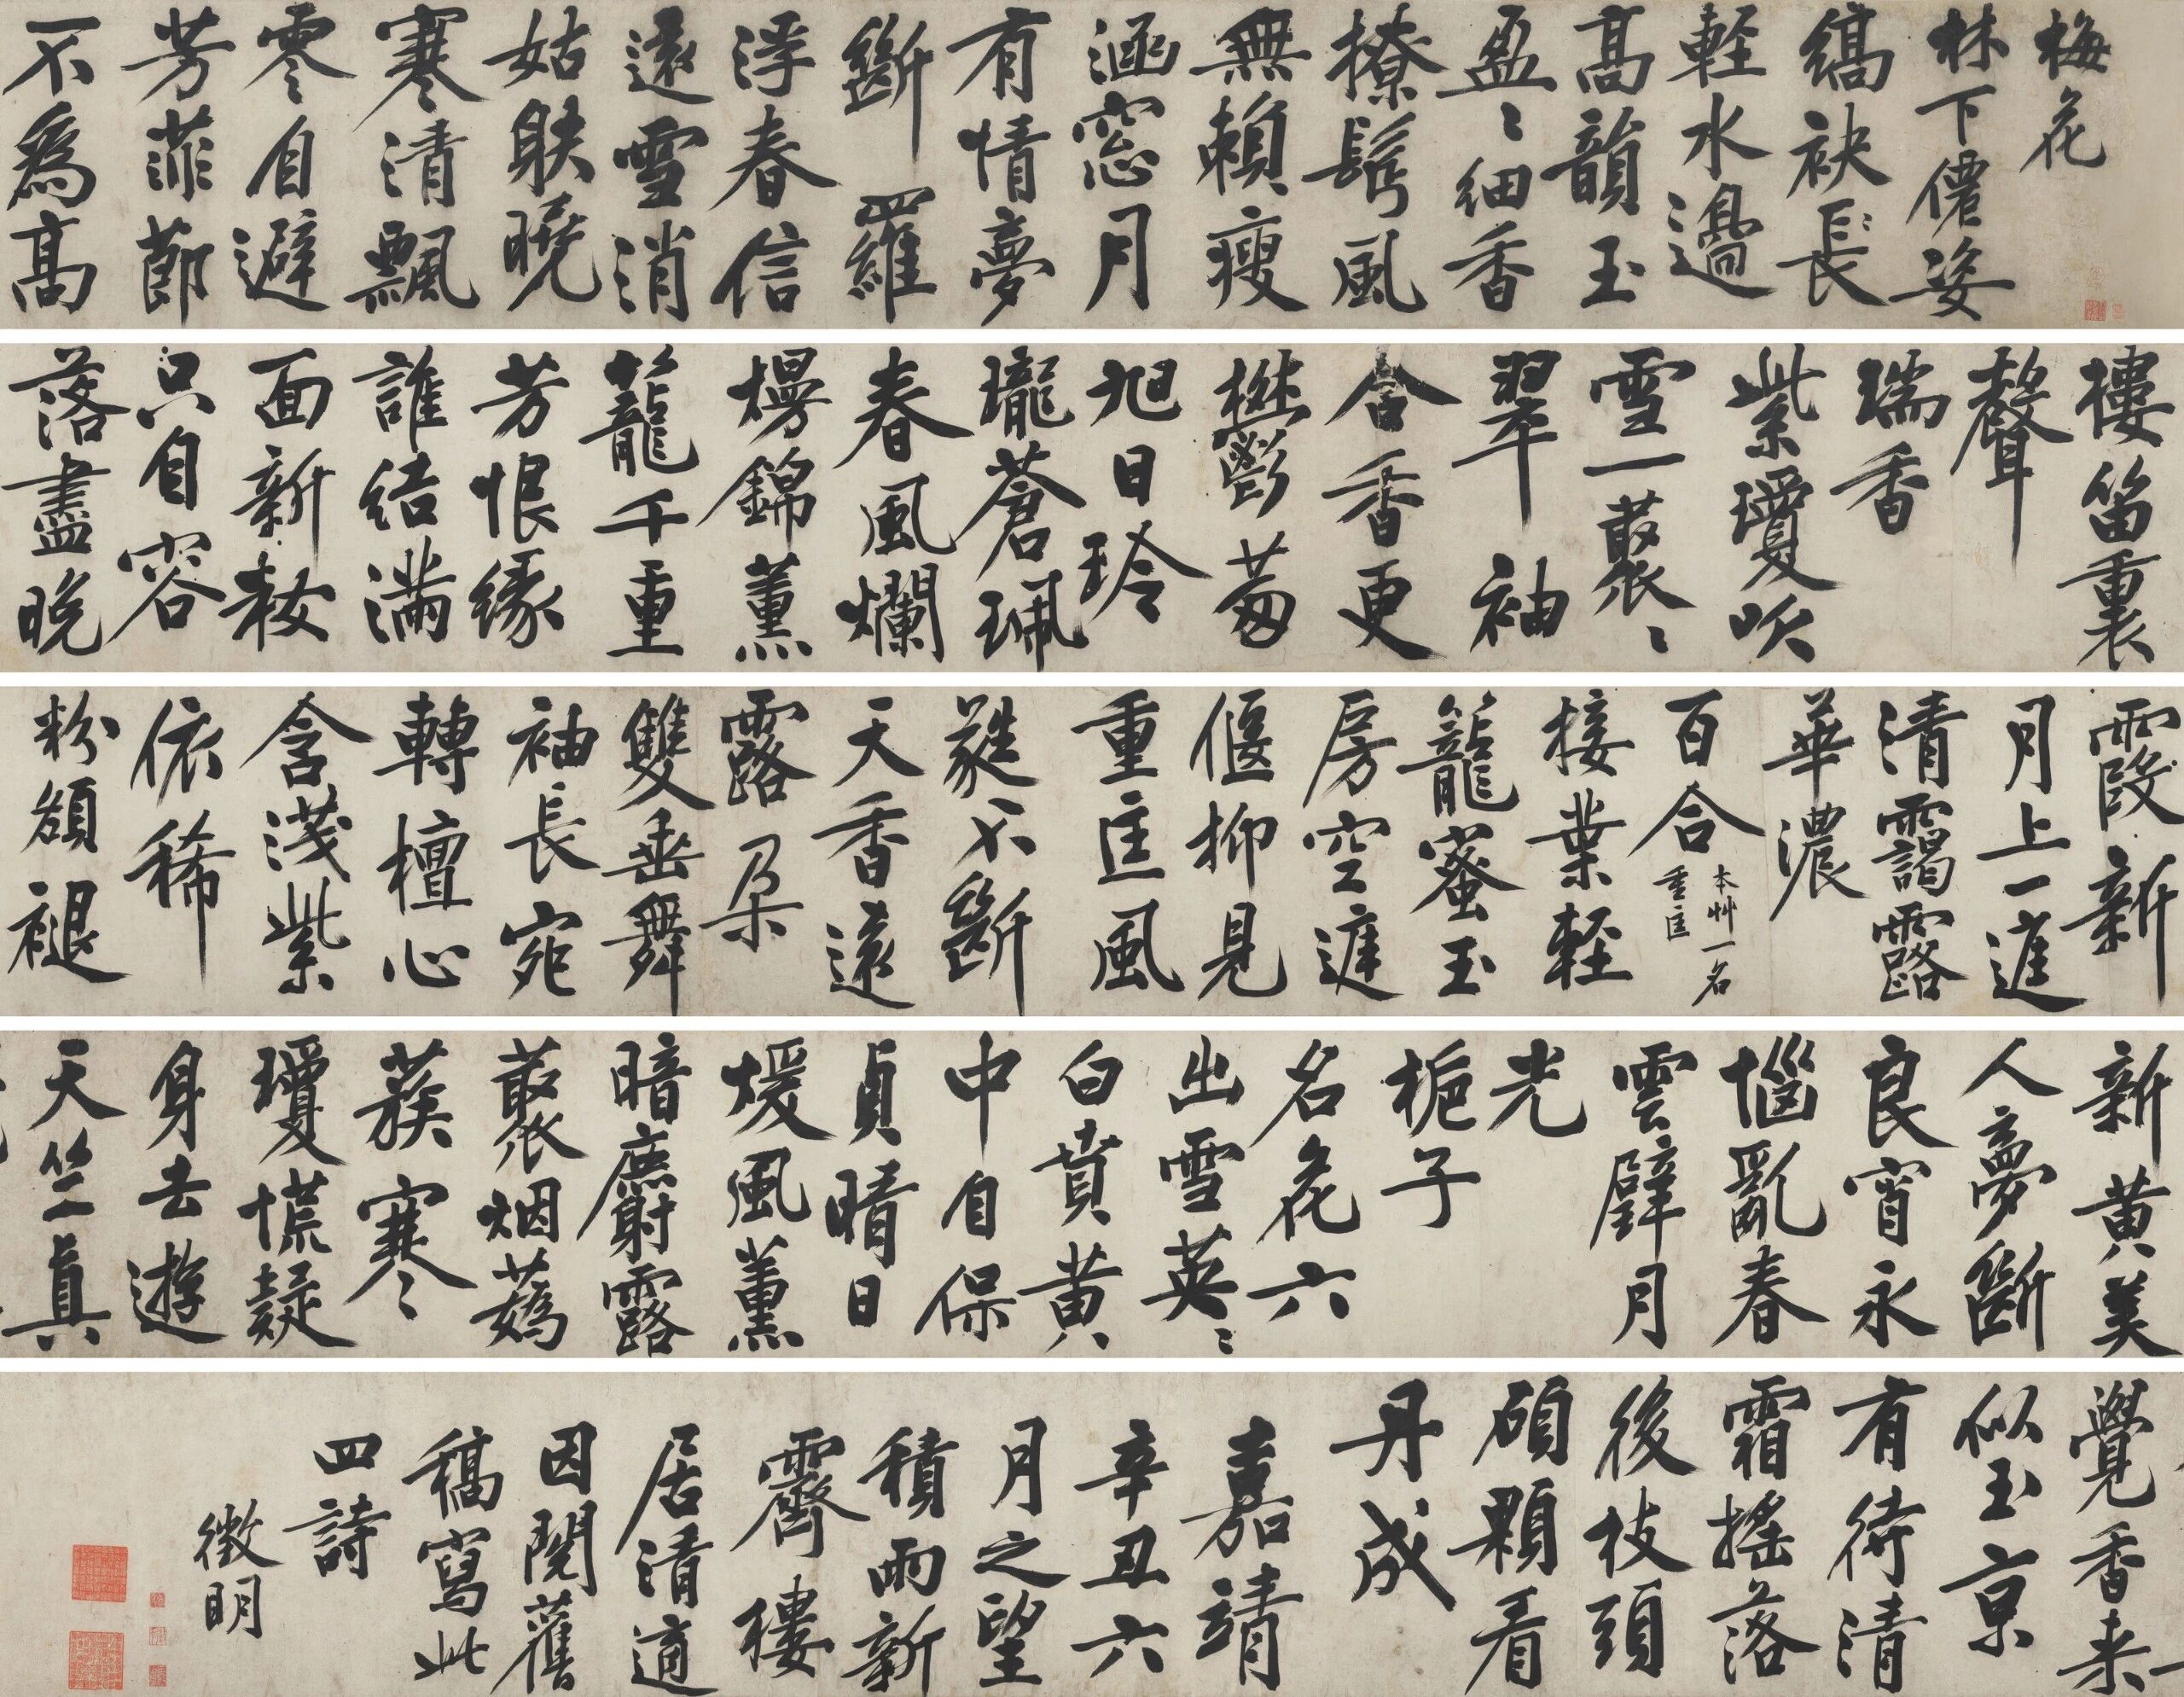 梅花
林下僊姿
縞袂長
軽水邊
高韻玉
盈〻細香
撩鬢風
無賴瘦
涵窓月
有情夢
斷羅
浮春信
遠雪消
姑射曉
寒清飄
零自避
芳菲節
不爲高
樓笛裏
聲
瑞香
紫瓊吹
雪一叢〻
翠袖
含香更
鬱茐
旭日玲
瓏蒼珮
春風爛
熳錦薰
籠千重
芳恨緣
誰結滿
面新妝
只自容
落盡晚
霞新
月上一庭
清靄露
華濃
百合
本艸一名
重匡
接葉軽
籠蜜玉
房空庭
偃抑見
重匡風
蕤不斷
天香遠
露朵
雙垂舞
袖長宛
轉檀心
含淺紫
依稀
粉額褪
新黃美
人夢斷
良宵永
惱亂春
雲臂月
光
梔子
名花六
出雪英〻
白賁黃
中自保
貞晴日
煖風薰
暗麝露
叢烟蕚
蔟寒
瓊慌疑
身去遊
天竺真
覺香来
似玉京
有待清
霜搖落
後枝頭
碩顆看
丹成
嘉靖
辛丑六
月之望
積雨新
霽樓
居清適
因閱舊
稿寫此
四詩
徵明